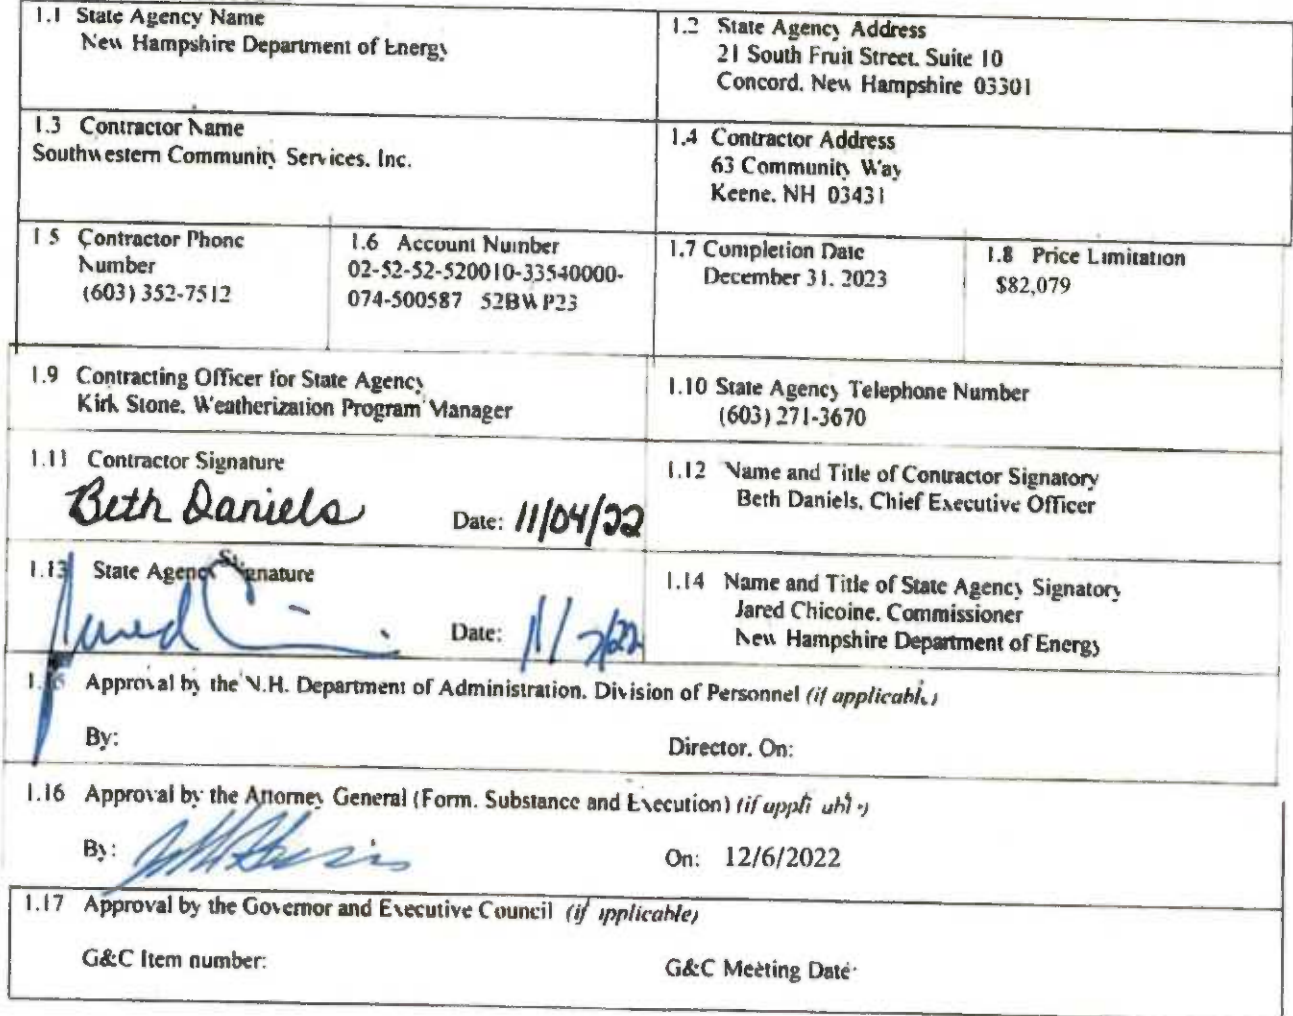 1.1 State Agency Name
New Hampshire Department of Energy
1.2 State Agency Address
21 South Fruit Street, Suite 10
Concord, New Hampshire 03301
1.3 Contractor Name
Southwestern Community Services, Inc.
1.4 Contractor Address
63 Community Way
Keene, NH 03431
1.5 Contractor Phone
Number
(603) 352-7512
1.6 Account Number
02-52-52-520010-33540000-
074-500587 52BWP23
1.7 Completion Date
December 31, 2023
1.8 Price Limitation
$82,079
1.9 Contracting Officer for State Agency
Kirk Stone, Weatherization Program Manager
1.10 State Agency Telephone Number
(603) 271-3670
1.11 Contractor Signature
Beth Daniels Date: 11/04/22
1.12 Name and Title of Contractor Signatory
Beth Daniels, Chief Executive Officer
1.13 State Agency Signature
Jared Date:
1.14 Name and Title of State Agency Signatory
Jared Chicoine, Commissioner
New Hampshire Department of Energy
1.15 Approval by the N.H. Department of Administration, Division of Personnel (if applicable)
By: Director, On:
1.16 Approval by the Attorney General (Form, Substance and Execution) (if applicable)
By: On: 12/6/2022
1.17 Approval by the Governor and Executive Council (if applicable)
G&C Item number: G&C Meeting Date: